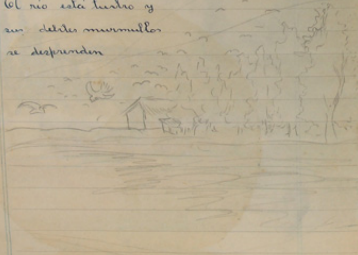 El río está [illegible] y
sus débiles murmullos
se desprenden